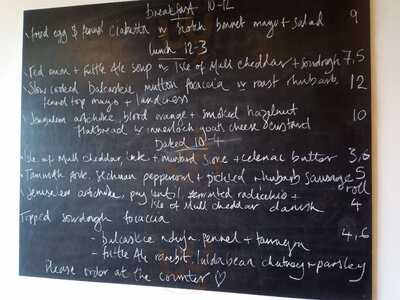 breakfast 10-12
fried egg & fennel ciabatta w scotch bonnet mayo + salad 9
lunch 12-3
Red onion + Futtle Ale soup w Isle of Mull cheddar + sourdough 7,5
Slow cooked Balcaskie mutton focaccia w roast rhubarb, 12
fennel top mayo +
Jerusalem artichoke, blood orange + smoked hazelnut 10
flatbread w innerloch goats cheese custard
Baked 10-4
Isle of Mull cheddar, leek + mustard scone + celeriac butter 3,6
Tamworth pork, sichuan peppercorn + pickled rhubarb sausage roll 5
Jerusalem artichoke, puy lentil, fermented radicchio + 4
Isle of Mull cheddar danish
Topped sourdough focaccia 4,6
- balcaskie nduja fennel + tarragon
- futtle Ale rarebit, fava bean chutney + parsley
Please order at the counter ♡